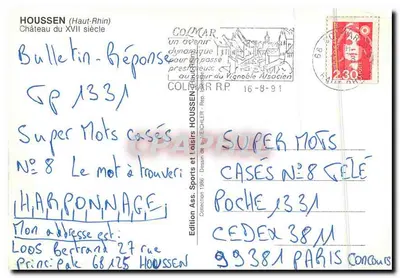 HOUSSEN (Haut-Rhin)
Château du XVII siècle
Bulletin-Réponse
Tp 1331
Super Mots casés
N°8 Le mot à trouver:
HARPONNAGE
Mon addresse est:
LOOS Bertrand 27 rue
principale 68125 HOUSSEN
Edition Ass. Sports et Loisirs HOUSSEN
Collection 1986 - Dessin de
EICHLER - Rep
COLMAR
un avenir
dynamique
pour un passé
prestigieux
au cœur du Vignoble Alsacien
COLMAR R.P. 16-8-91
68
2,30
SUPER MOTS
CASÉS N°8 TÉLÉ
POCHE 1331
CEDEX 3811
99381 PARIS CONCOURS